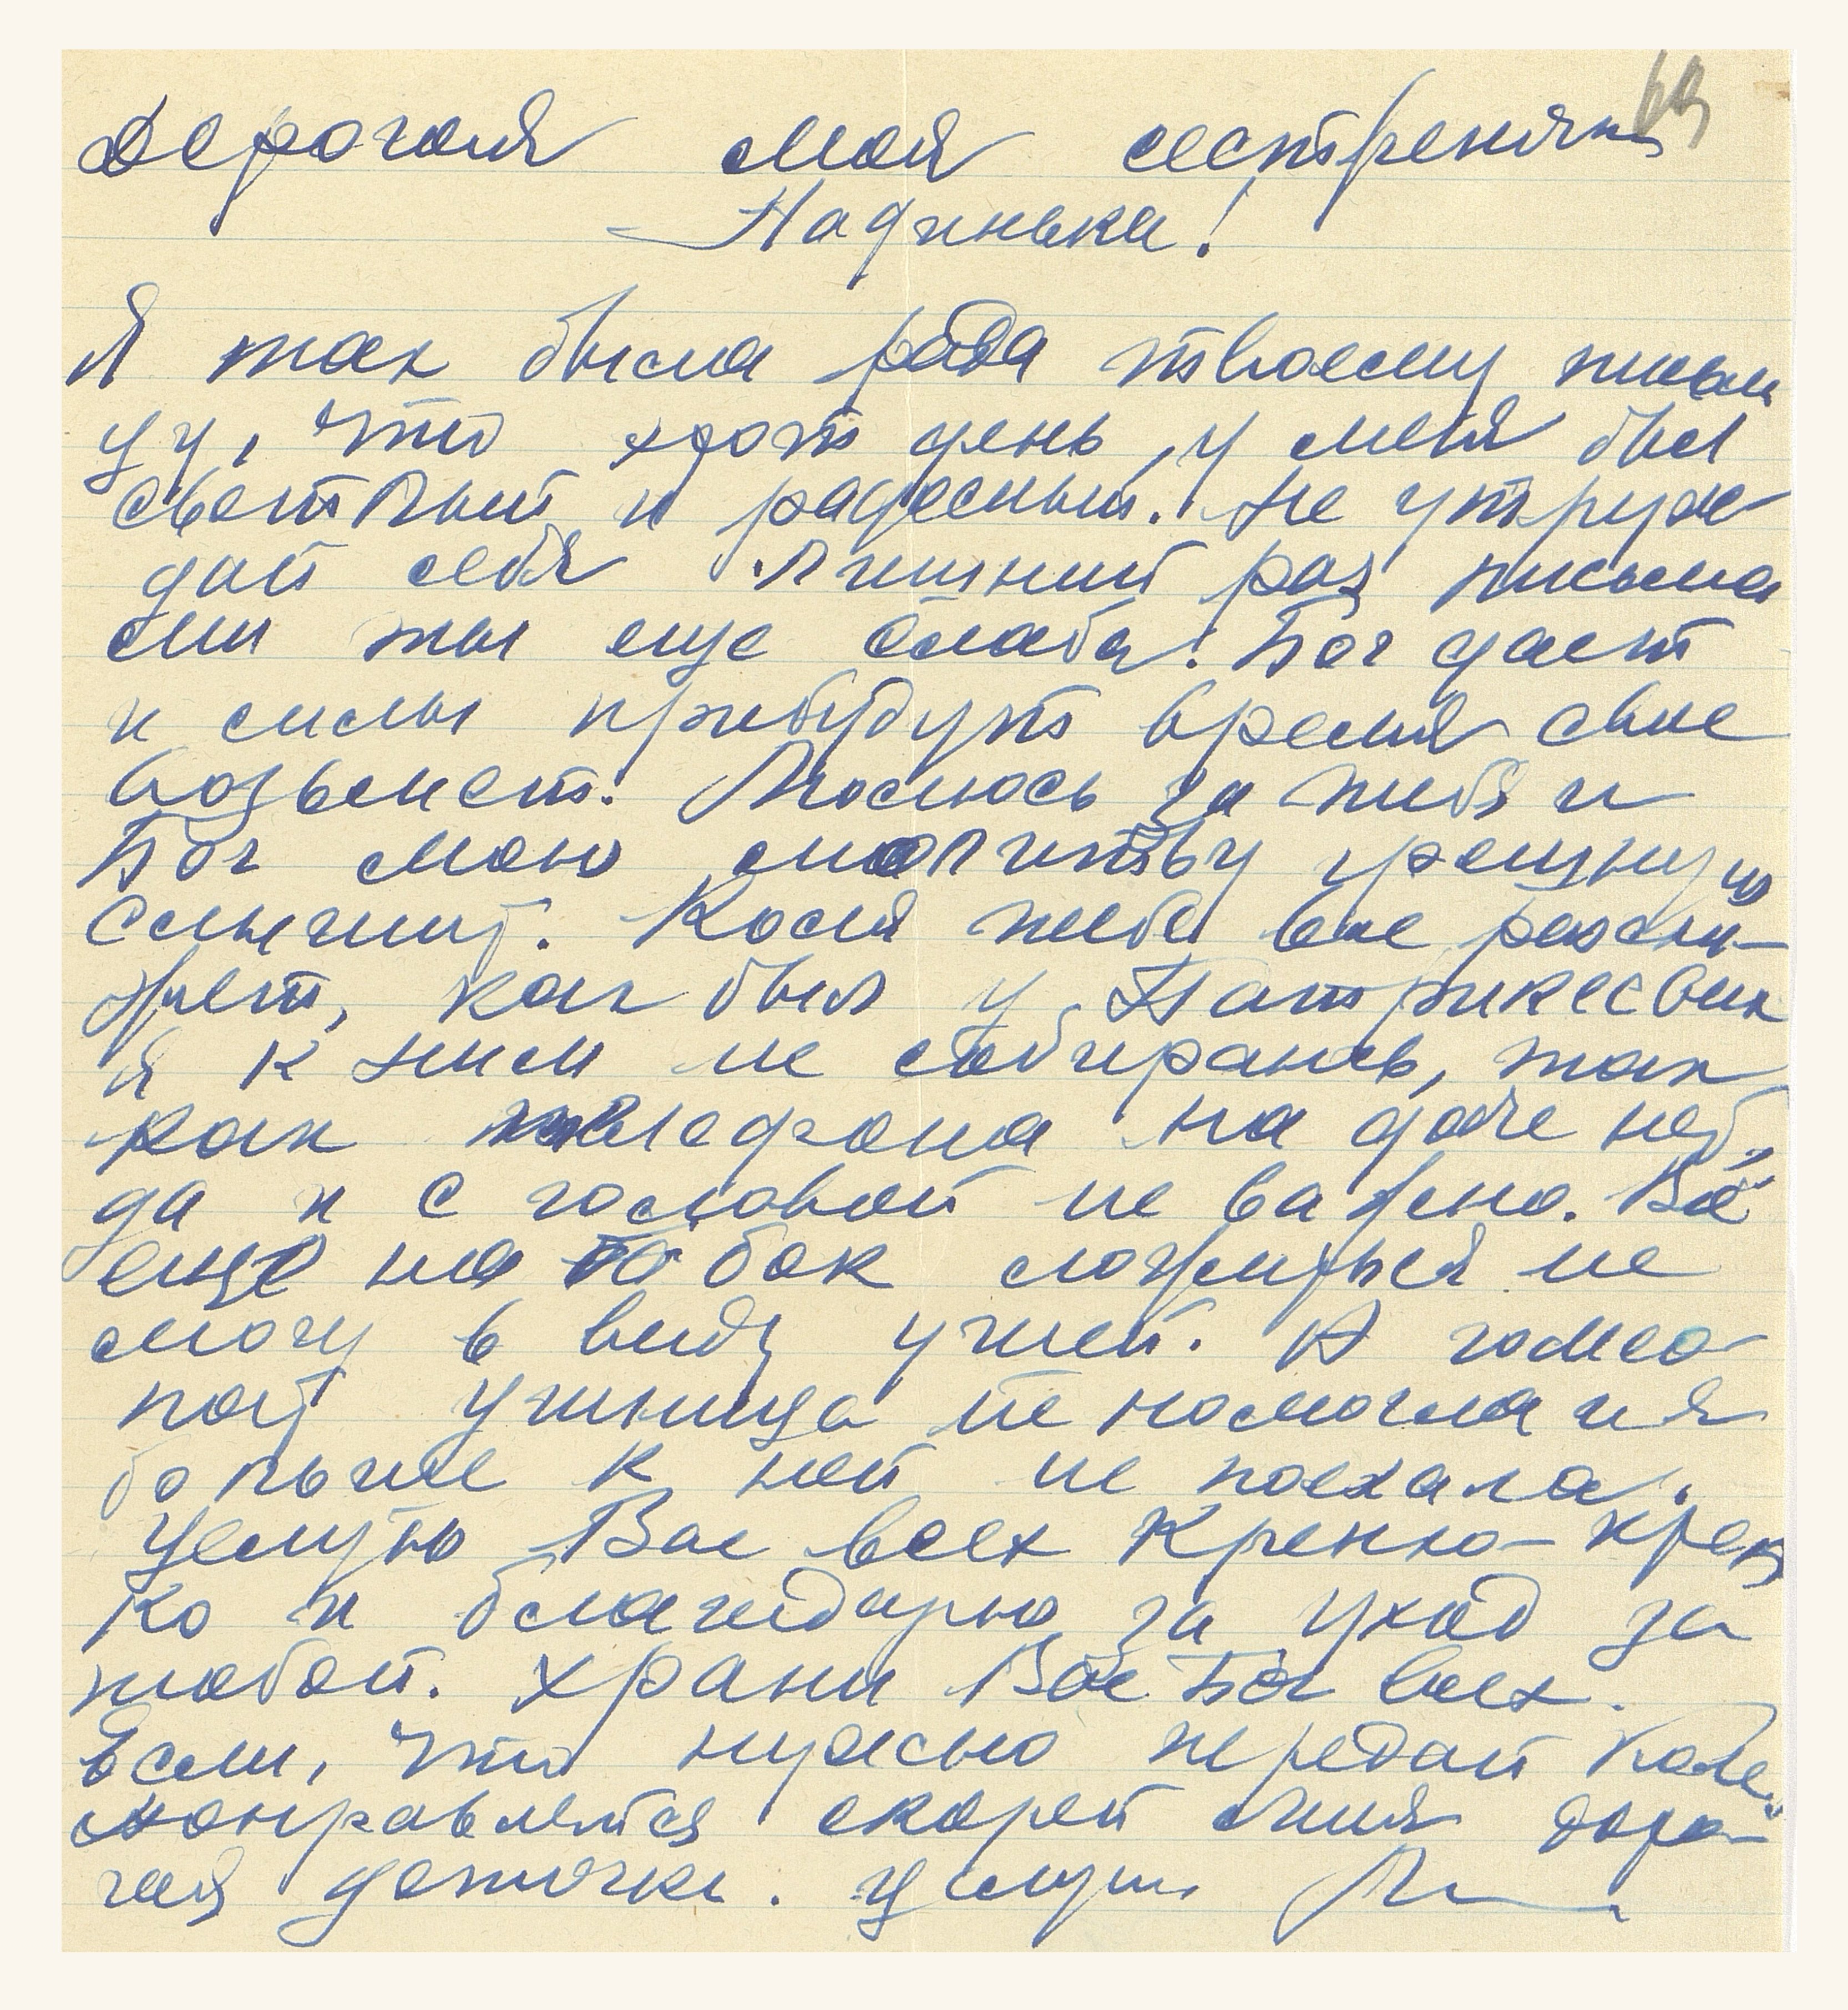 69
Дорогая моя сестренка
Надинька!
Я так была рада твоему письм
цу, что этот день, у меня был
светлый и радосный. Не утруж
дай себя лишний раз письма
ми ты еще слаба! Бог даст
и силы прибудут время свое
возьмет! Молюсь за тебя и
Бог мою молитву грешную
слышит. Коля тебе все расска-
жет, как был у Патрикеевых
я к ним не собиралась, так
как телефона на даче нет,
да и с головой не важно. Всё
ещё на бок ложиться не
могу в виду ушей. А гомео-
пат ушница не помогла и я
больше к ней не поехала.
Целую Вас всех крепко-креп
ко и благодарю за уход за
тобой. Храни Вас Бог всех.
Если, что нужно передай Коле.
скорей моя доро-
гая деточка. Целую